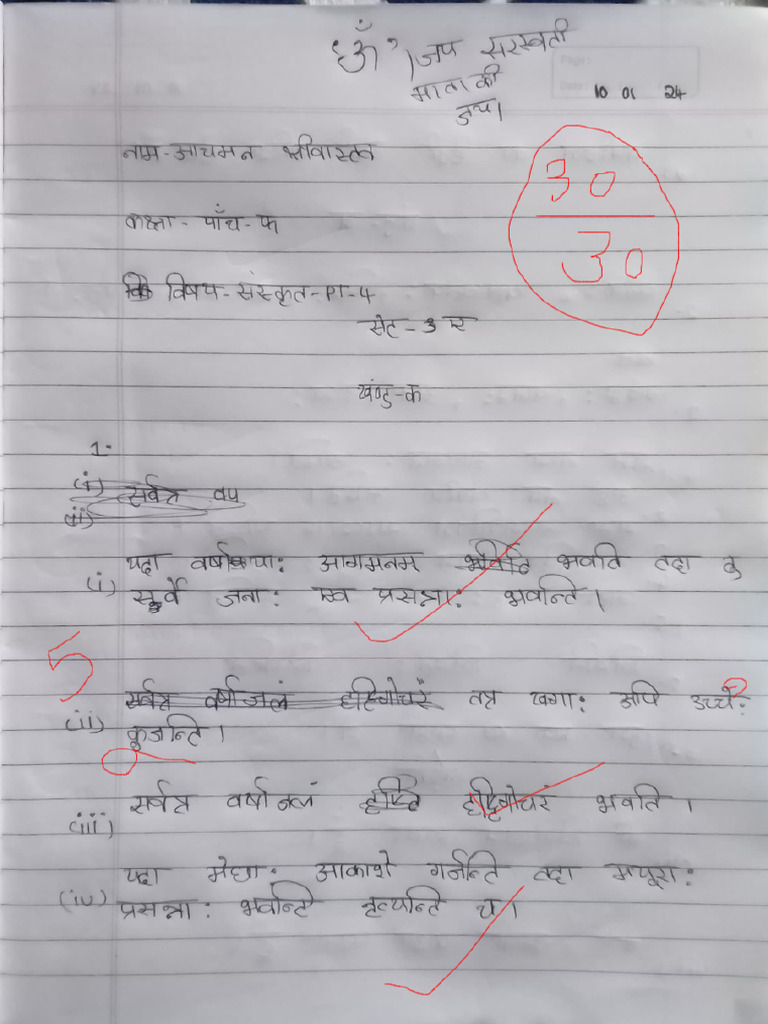 ॐ, जय सरस्वती
माता की
जय।
Page:
Date: 10 01 24
नाम-आचमन श्रीवास्तव
30
30
कक्षा - पाँच - फ
विषय - संस्कृत-PT-4
सेट - 3 ए
खण्ड-क
1.
(i) सर्वत्र वप
(ii)
यदा वर्षाकाया: आगमनम भवति तदा
(i) सर्वे जना: प्रसन्ना: भवन्ति।
5
सर्वत्र वर्षाजलं दृष्टिगोचरं तत्र खगा: अपि उच्चै:
(ii) कुजन्ति।
सर्वत्र वर्षाजलं दृष्टिगोचरं भवति।
(iii)
यदा मेघा: आकाशे गर्जन्ति तदा मयूरा:
(iv) प्रसन्ना: भवन्ति नृत्यन्ति च।